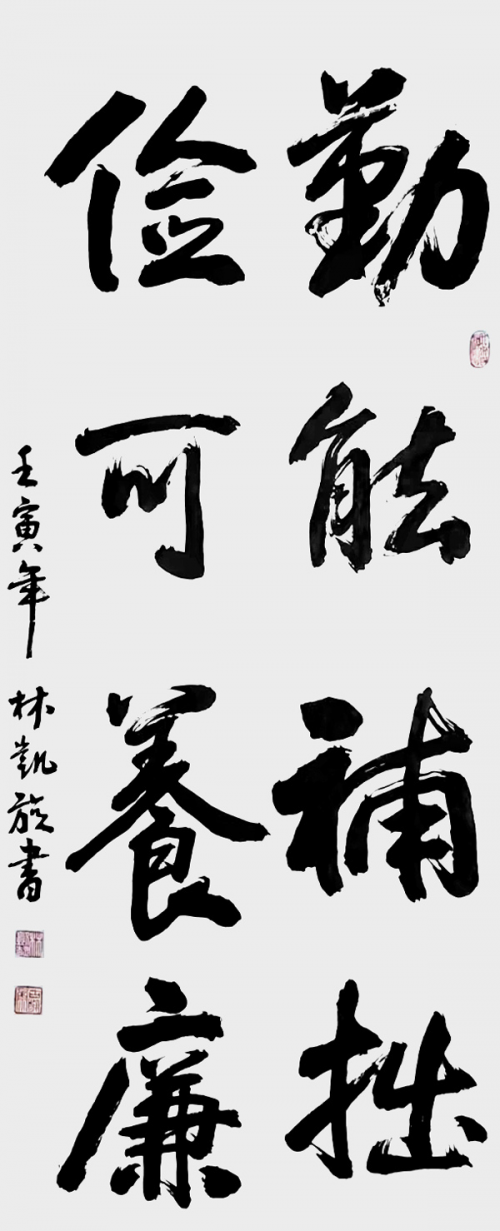 勤能補拙
儉可養廉
壬寅年 林凱旋書